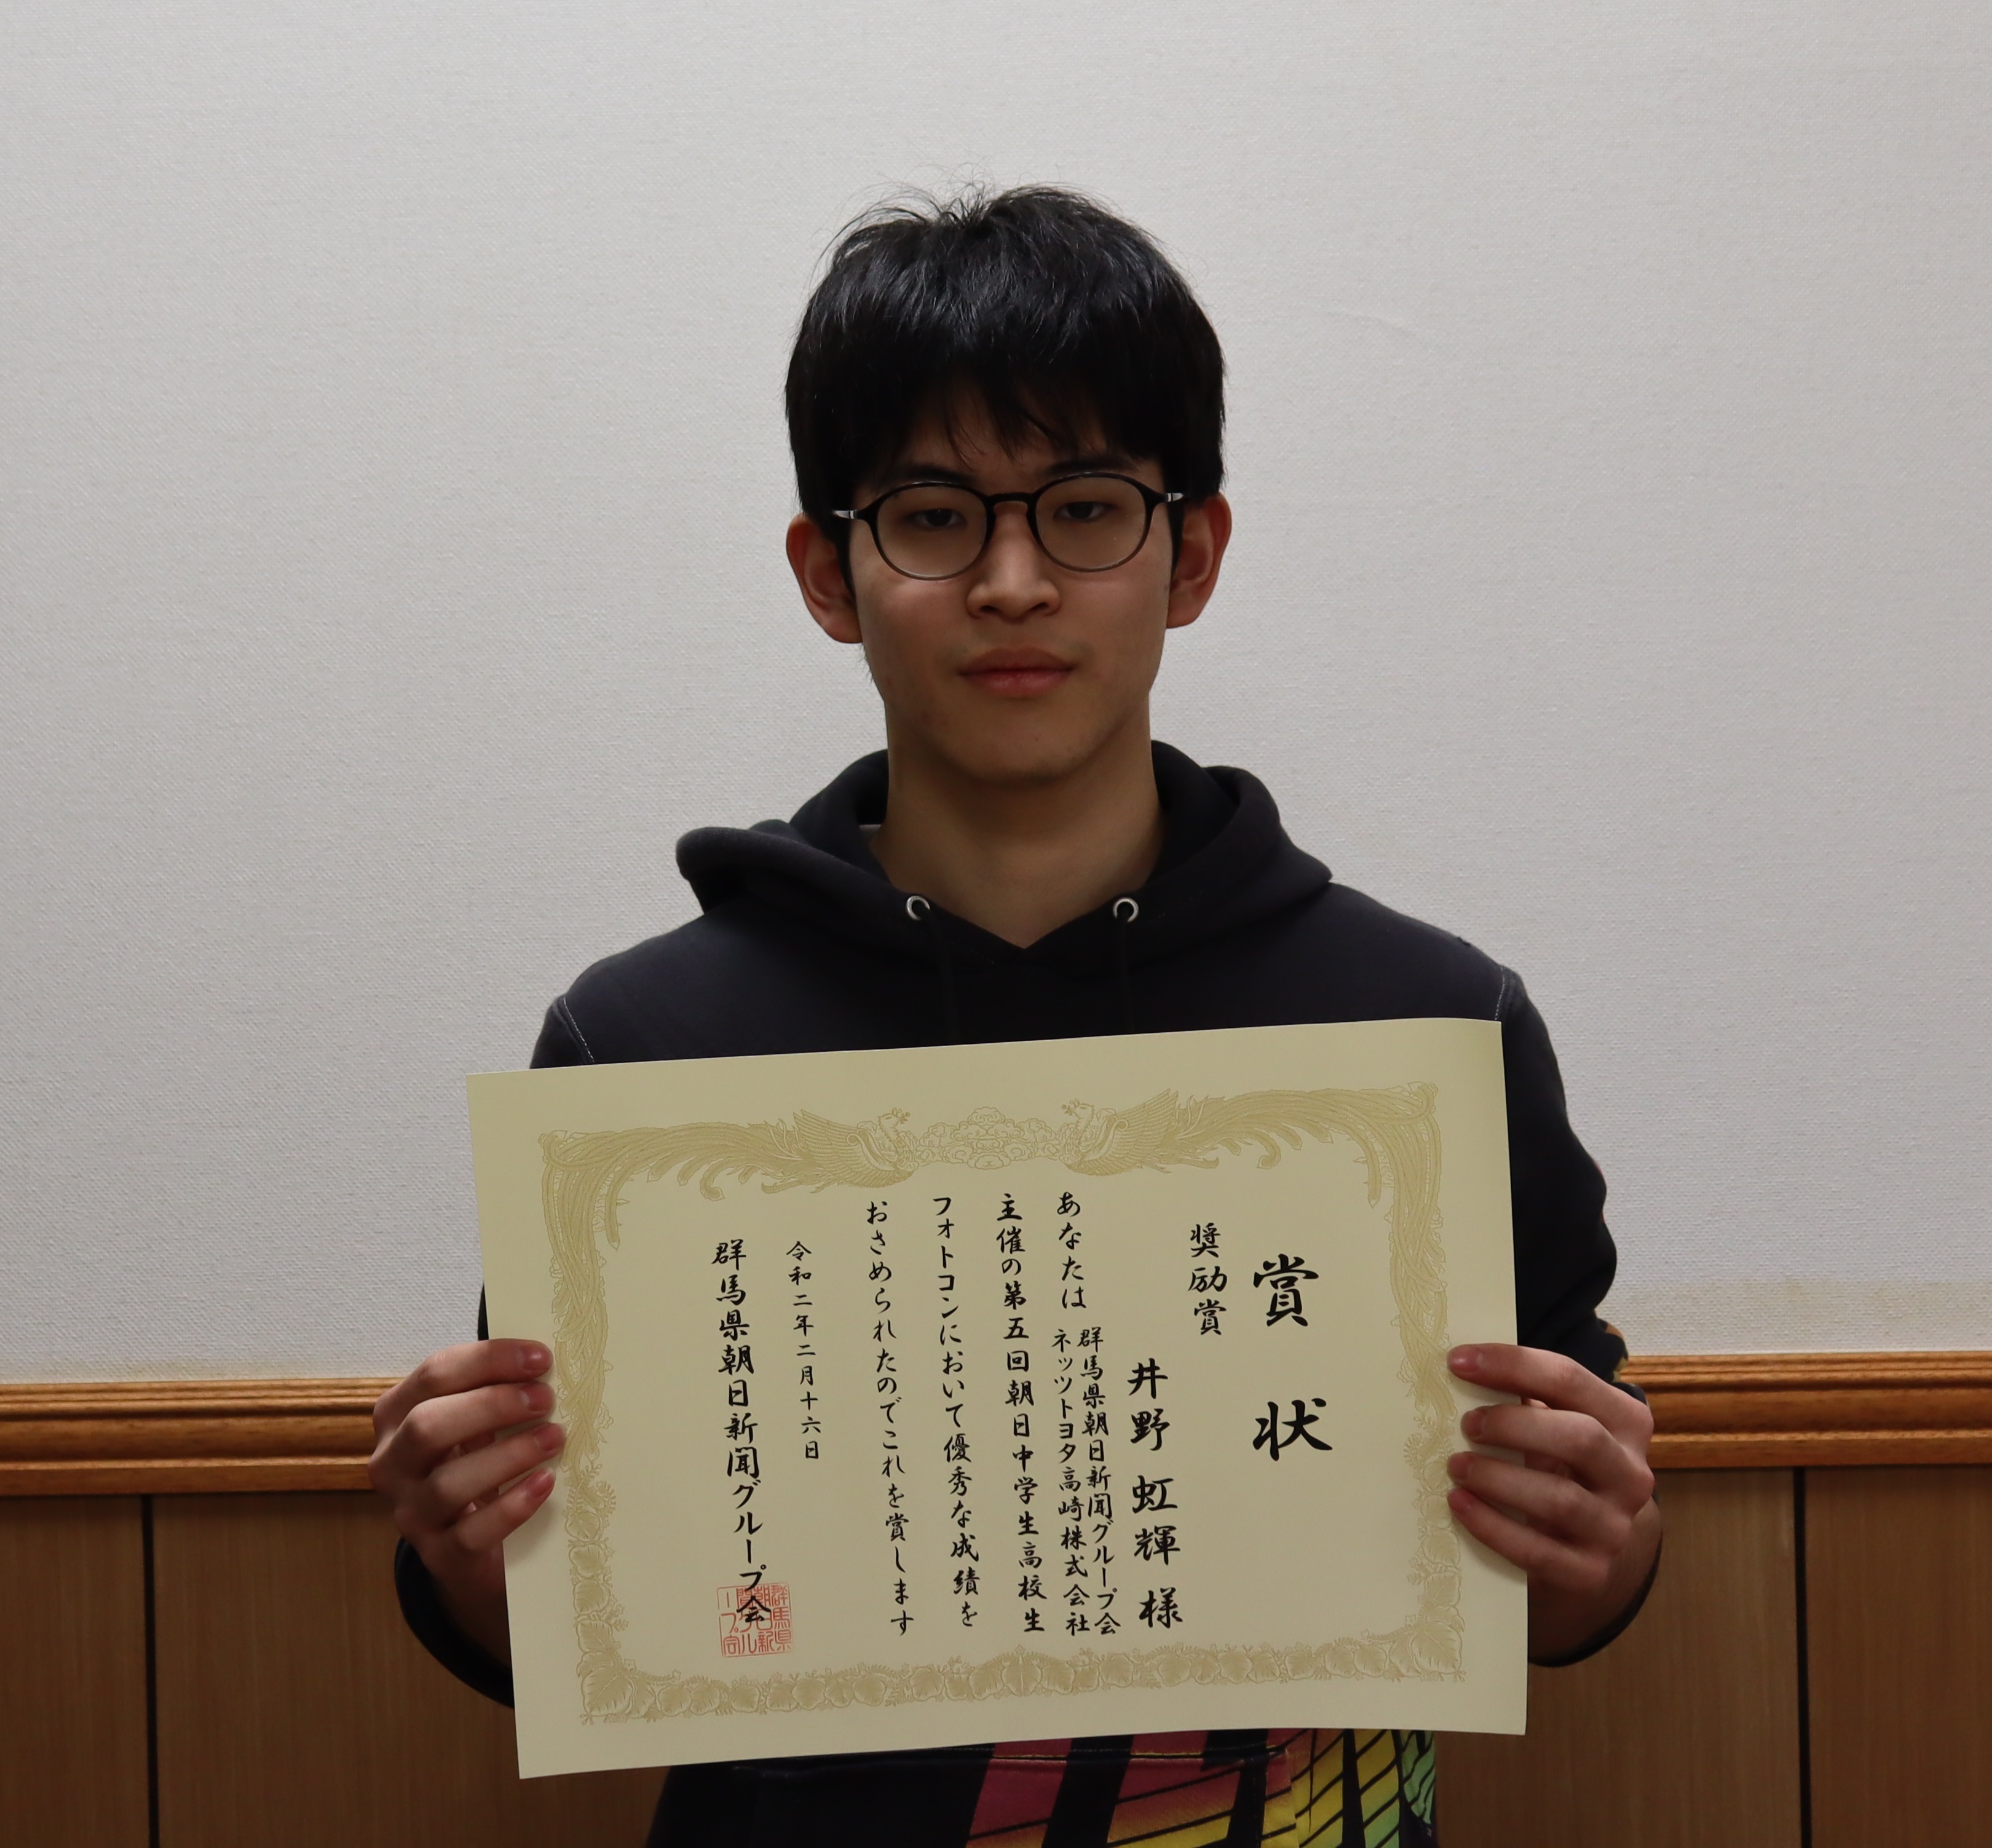 賞状
奨励賞
井野虹輝様
あなたは群馬県朝日新聞グループ会
ネッツトヨタ高崎株式会社
主催の第五回朝日中学生高校生
フォトコンにおいて優秀な成績を
おさめられたのでこれを賞します
令和二年二月十六日
群馬県朝日新聞グループ会